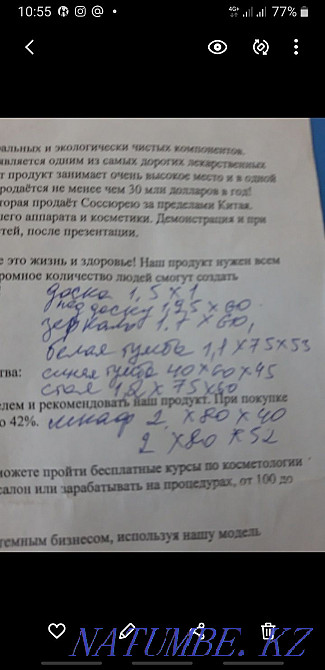 10:55
4G+ 77%
ральных и экологически чистых компонентов.
является одним из самых дорогих лекарственных
т продукт занимает очень высокое место и в одной
родаётся не менее чем 30 млн долларов в год!
торая продаёт Соссюрею за пределами Китая.
шего аппарата и косметики. Демонстрация и при
стей, после презентации.
е это жизнь и здоровье! Наш продукт нужен всем
ромное количество людей смогут создать
доска 1,5 х 1
под доску 1,25 х 60
зеркало 1.7 х 60,
белая тумба 1,1 х 75 х 53
тва: синяя тумба 40 х 60 х 45
стол 1.2 х 75 х 60
елем и рекомендовать наш продукт. При покупке
о 42%. шкаф 2, х 80 х 40
2 х 80 х 52
можете пройти бесплатные курсы по косметологии
салон или зарабатывать на процедурах, от 100 до
темным бизнесом, используя нашу модель
NATUMBE.KZ